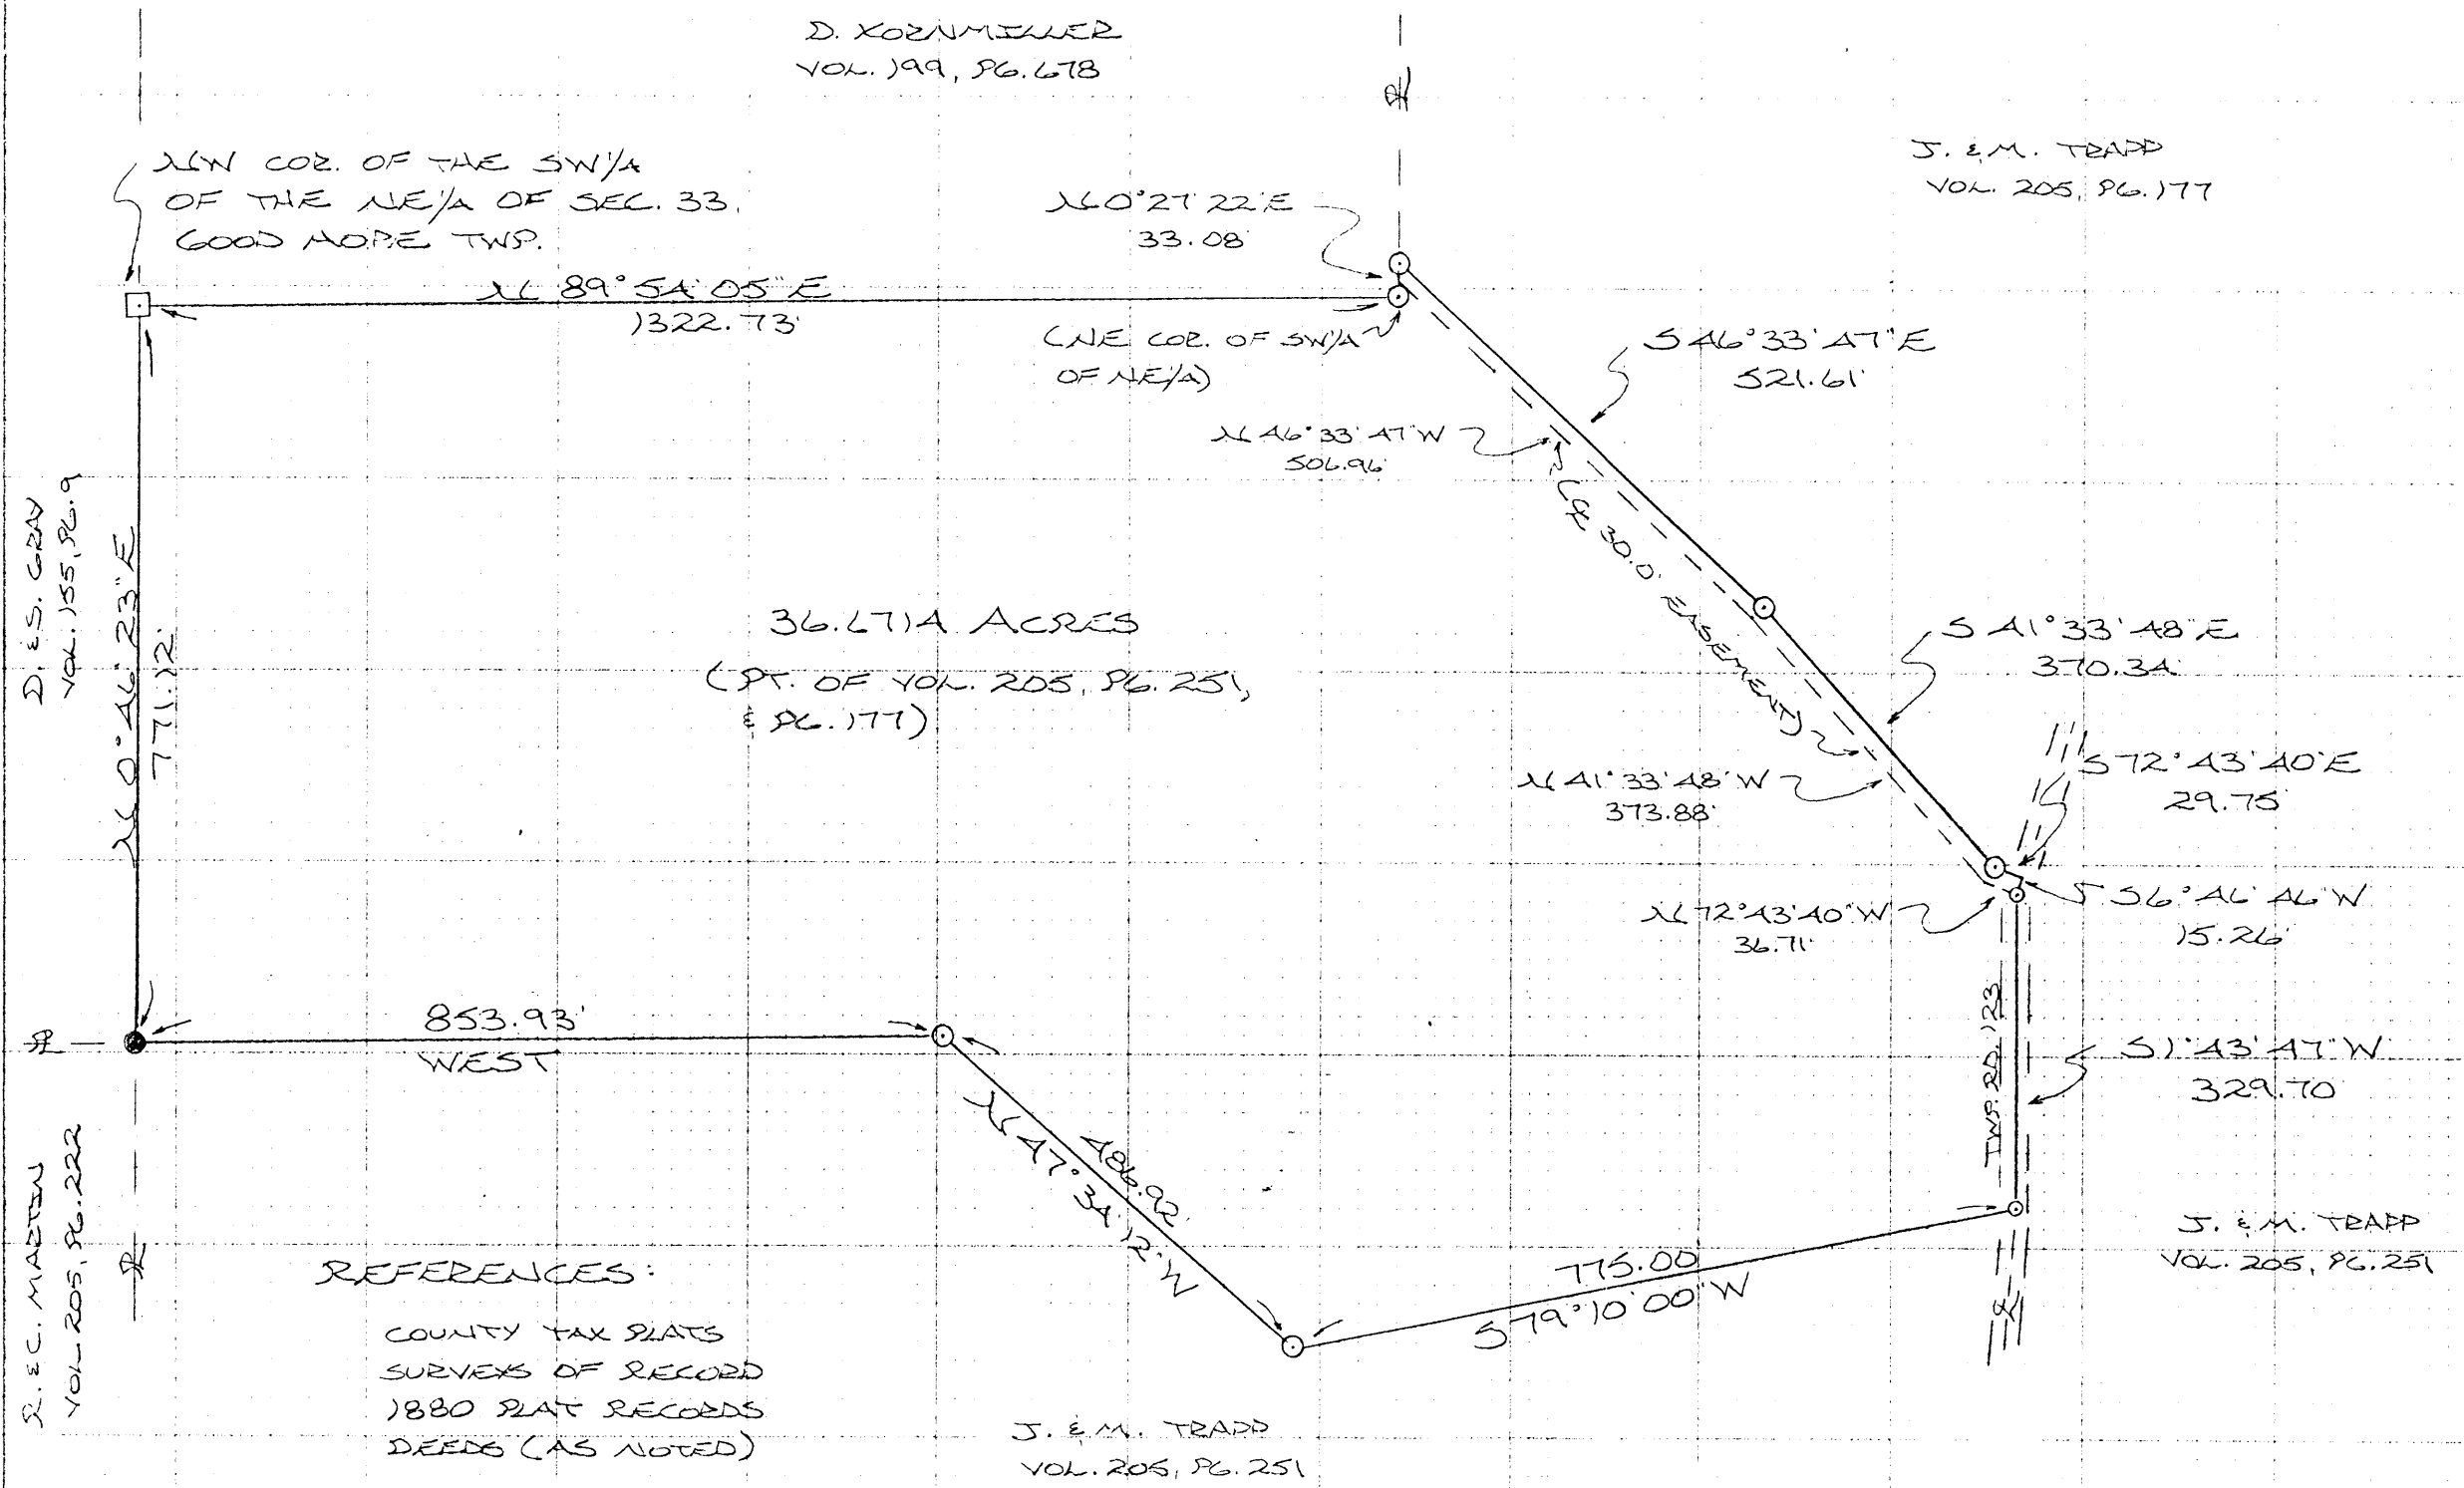 D. KORNMILLER
VOL. 199, PG. 678
J. & M. TRAPP
VOL. 205, PG. 177
NW COR. OF THE SW1/4
OF THE NE1/4 OF SEC. 33,
GOOD HOPE TWP.
N 0°27'22"E
33.08'
N 89°54'05"E
1322.73'
(NE COR. OF SW1/4
OF NE1/4)
S 46°33'47"E
521.61'
N 46°33'47"W
506.96'
(℄ 30.0' EASEMENT)
D. & S. GRAY
VOL. 155, PG. 9
N 0°46'23"E
771.12'
36.6714 ACRES
(PT. OF VOL. 205, PG. 251,
& PG. 177)
S 41°33'48"E
370.34'
N 41°33'48"W
373.88'
S 72°43'40"E
29.75'
S 56°46'46"W
15.26'
N 72°43'40"W
36.71'
853.93'
WEST
TWP. RD. 123
S 1°43'47"W
329.70'
486.92'
N 47°34'12"W
775.00'
S 79°10'00"W
J. & M. TRAPP
VOL. 205, PG. 251
R. & C. MARTIN
VOL. 205, PG. 222
REFERENCES:
COUNTY TAX PLATS
SURVEYS OF RECORD
1880 PLAT RECORDS
DEEDS (AS NOTED)
J. & M. TRAPP
VOL. 205, PG. 251